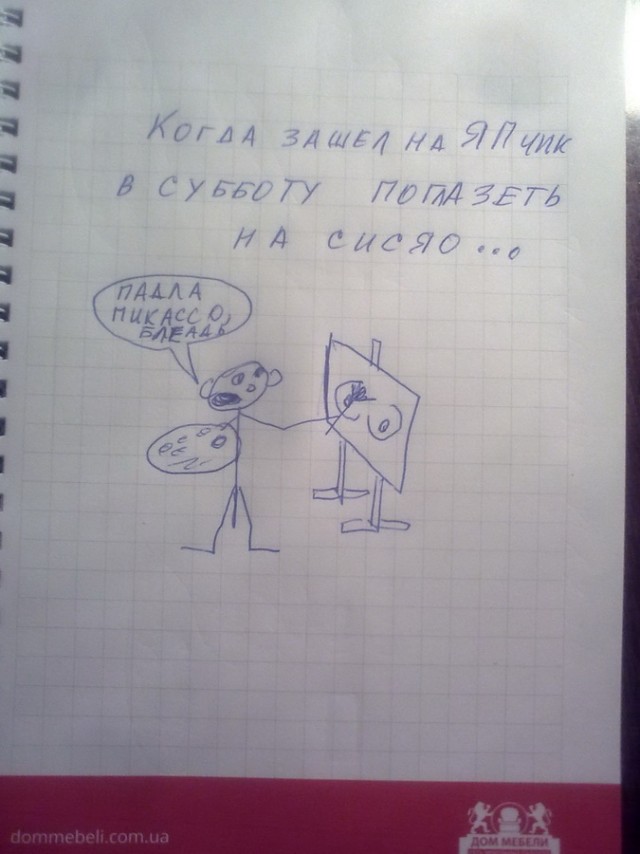 КОГДА ЗАШЕЛ НА ЯПчик
В СУББОТУ ПОГЛАЗЕТЬ
НА СИСЯО...
ПАДЛА
ПИКАССО,
БЛЕАДЬ
dommebeli.com.ua
ДОМ МЕБЕЛИ